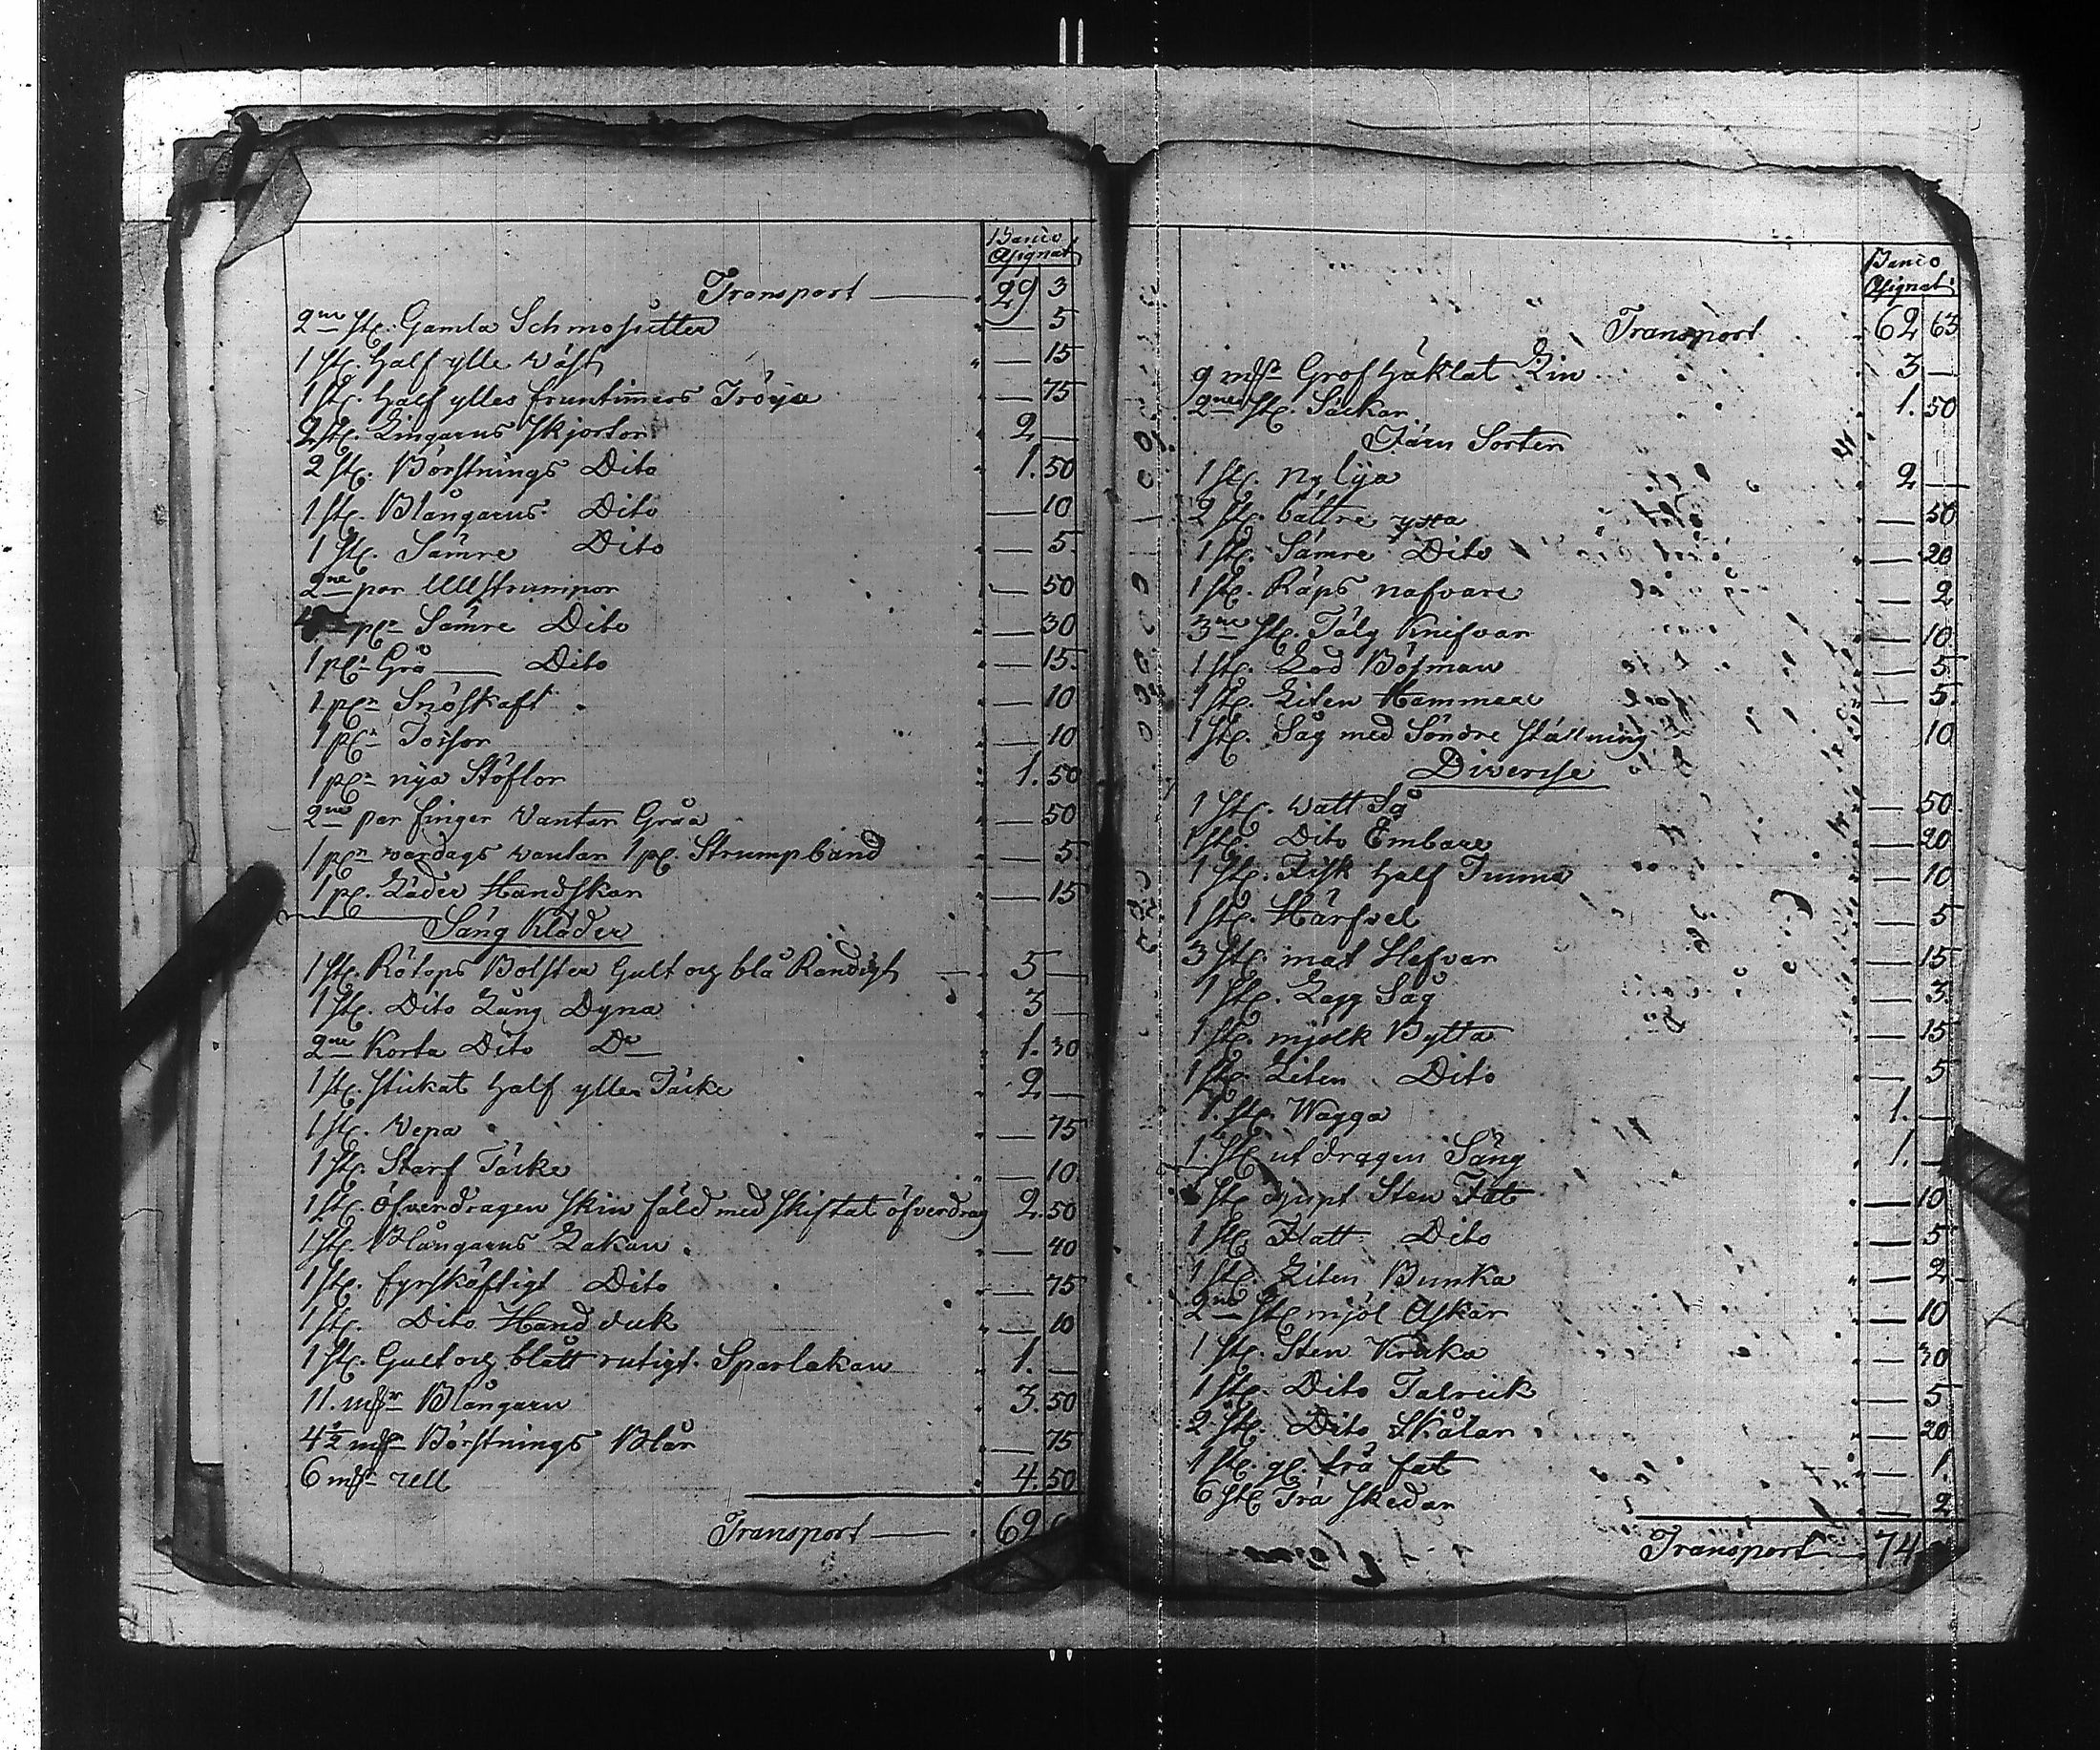 Banco
Asignat
Transport — 29 3
2ne stc. Gamla Schmosetter — 5
1 stc. half ylle väst — 15
1 stc. half ylles fruntimers Tröija — 75
2 stc. Lingarns Skjortor 2 —
2 stc. Börstnings Dito 1. 50
1 stc. Blångarns Dito — 10
1 stc. Sämre Dito — 5
2ne par Ullstrumpor — 50
pr Sämre Dito — 30
1 pr Grå — Dito — 15
1 pr Snöskaft — 10
1 pr Tossor — 10
1 pr nya Stöflor 1. 50
2ne par finger Vantar Gråa — 50
1 pr vardags vantar 1 pr. Strumpband — 5
1 pr. Läder Handskar — 15
Säng Kläder
1 stc. Rötops Bolster Gult og blå Randigt — 5 —
1 stc. Dito Lång Dyna 3 —
2ne Korta Dito Do 1. 30
1 stc. Stickat half ylle Täcke 2 —
1 stc. Vepa — 75
1 stc. Starf Täcke — 10
1 stc. öfverdragen skin fäld med skiftat öfverdrag 2. 50
1 stc. Blångarns Lakan — 40
1 stc. fyrskäftigt Dito — 75
1 stc. Dito Handduk — 10
1 stc. Gult og blått rutigt Sparlakan 1. —
11. mkr Blångarn 3. 50
4 1/2 mkr Börstnings Blår — 75
6 mkr ull 4. 50
Transport — 62
Banco
Asignat
Transport 62 63
9 mkr Grof häklat Lin 3 —
2ne stc. Säckar 1. 50
Järn Sorten
1 stc. ny Lija 2 —
2 stc. bättre yxa — 50
1 stc. Sämre Dito — 20
1 stc. Räps nafvare — 2
3ne stc. Tälg Knifvar — 10
1 stc. Lod Bösman — 5
1 stc. Liten Hammare — 5
1 stc. Såg med Söndre Ställning 10
Diverse
1 stc. vatt Så — 50
1 stc. Dito Embare — 20
1 stc. Fisk half Tunna — 10
1 stc. Härfvel — 5
3 stc. mat Hefvar — 15
1 stc. Lagg Såg — 3
1 stc. mjölk Bytta — 15
1 stc. Liten Dito — 5
1. stc. Wagga 1. —
1. stc. utdragen Säng 1. —
stc. djupt Sten Fat — 10
1 stc. Flatt Dito — 5
1 stc. Liten Bunka — 2
2ne stc. mjöl Askar — 10
1 stc. Sten Kruka — 30
1 stc. Dito Talrick — 5
2 stc. Dito Skålar — 20
1 stc. gl. trä fat — 1
6 stc. Trä Skedar — 2
Transport — 74